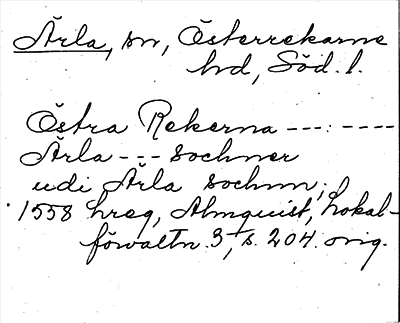 Ärla, sn, Österrekarne
hd, Söd. l.
Östra Rekerna ---:----
Ärla --- sochner
udi Ärla sochnn;
1558 hreg, Almquist, Lokal-
förvaltn. 3, s. 204. orig.